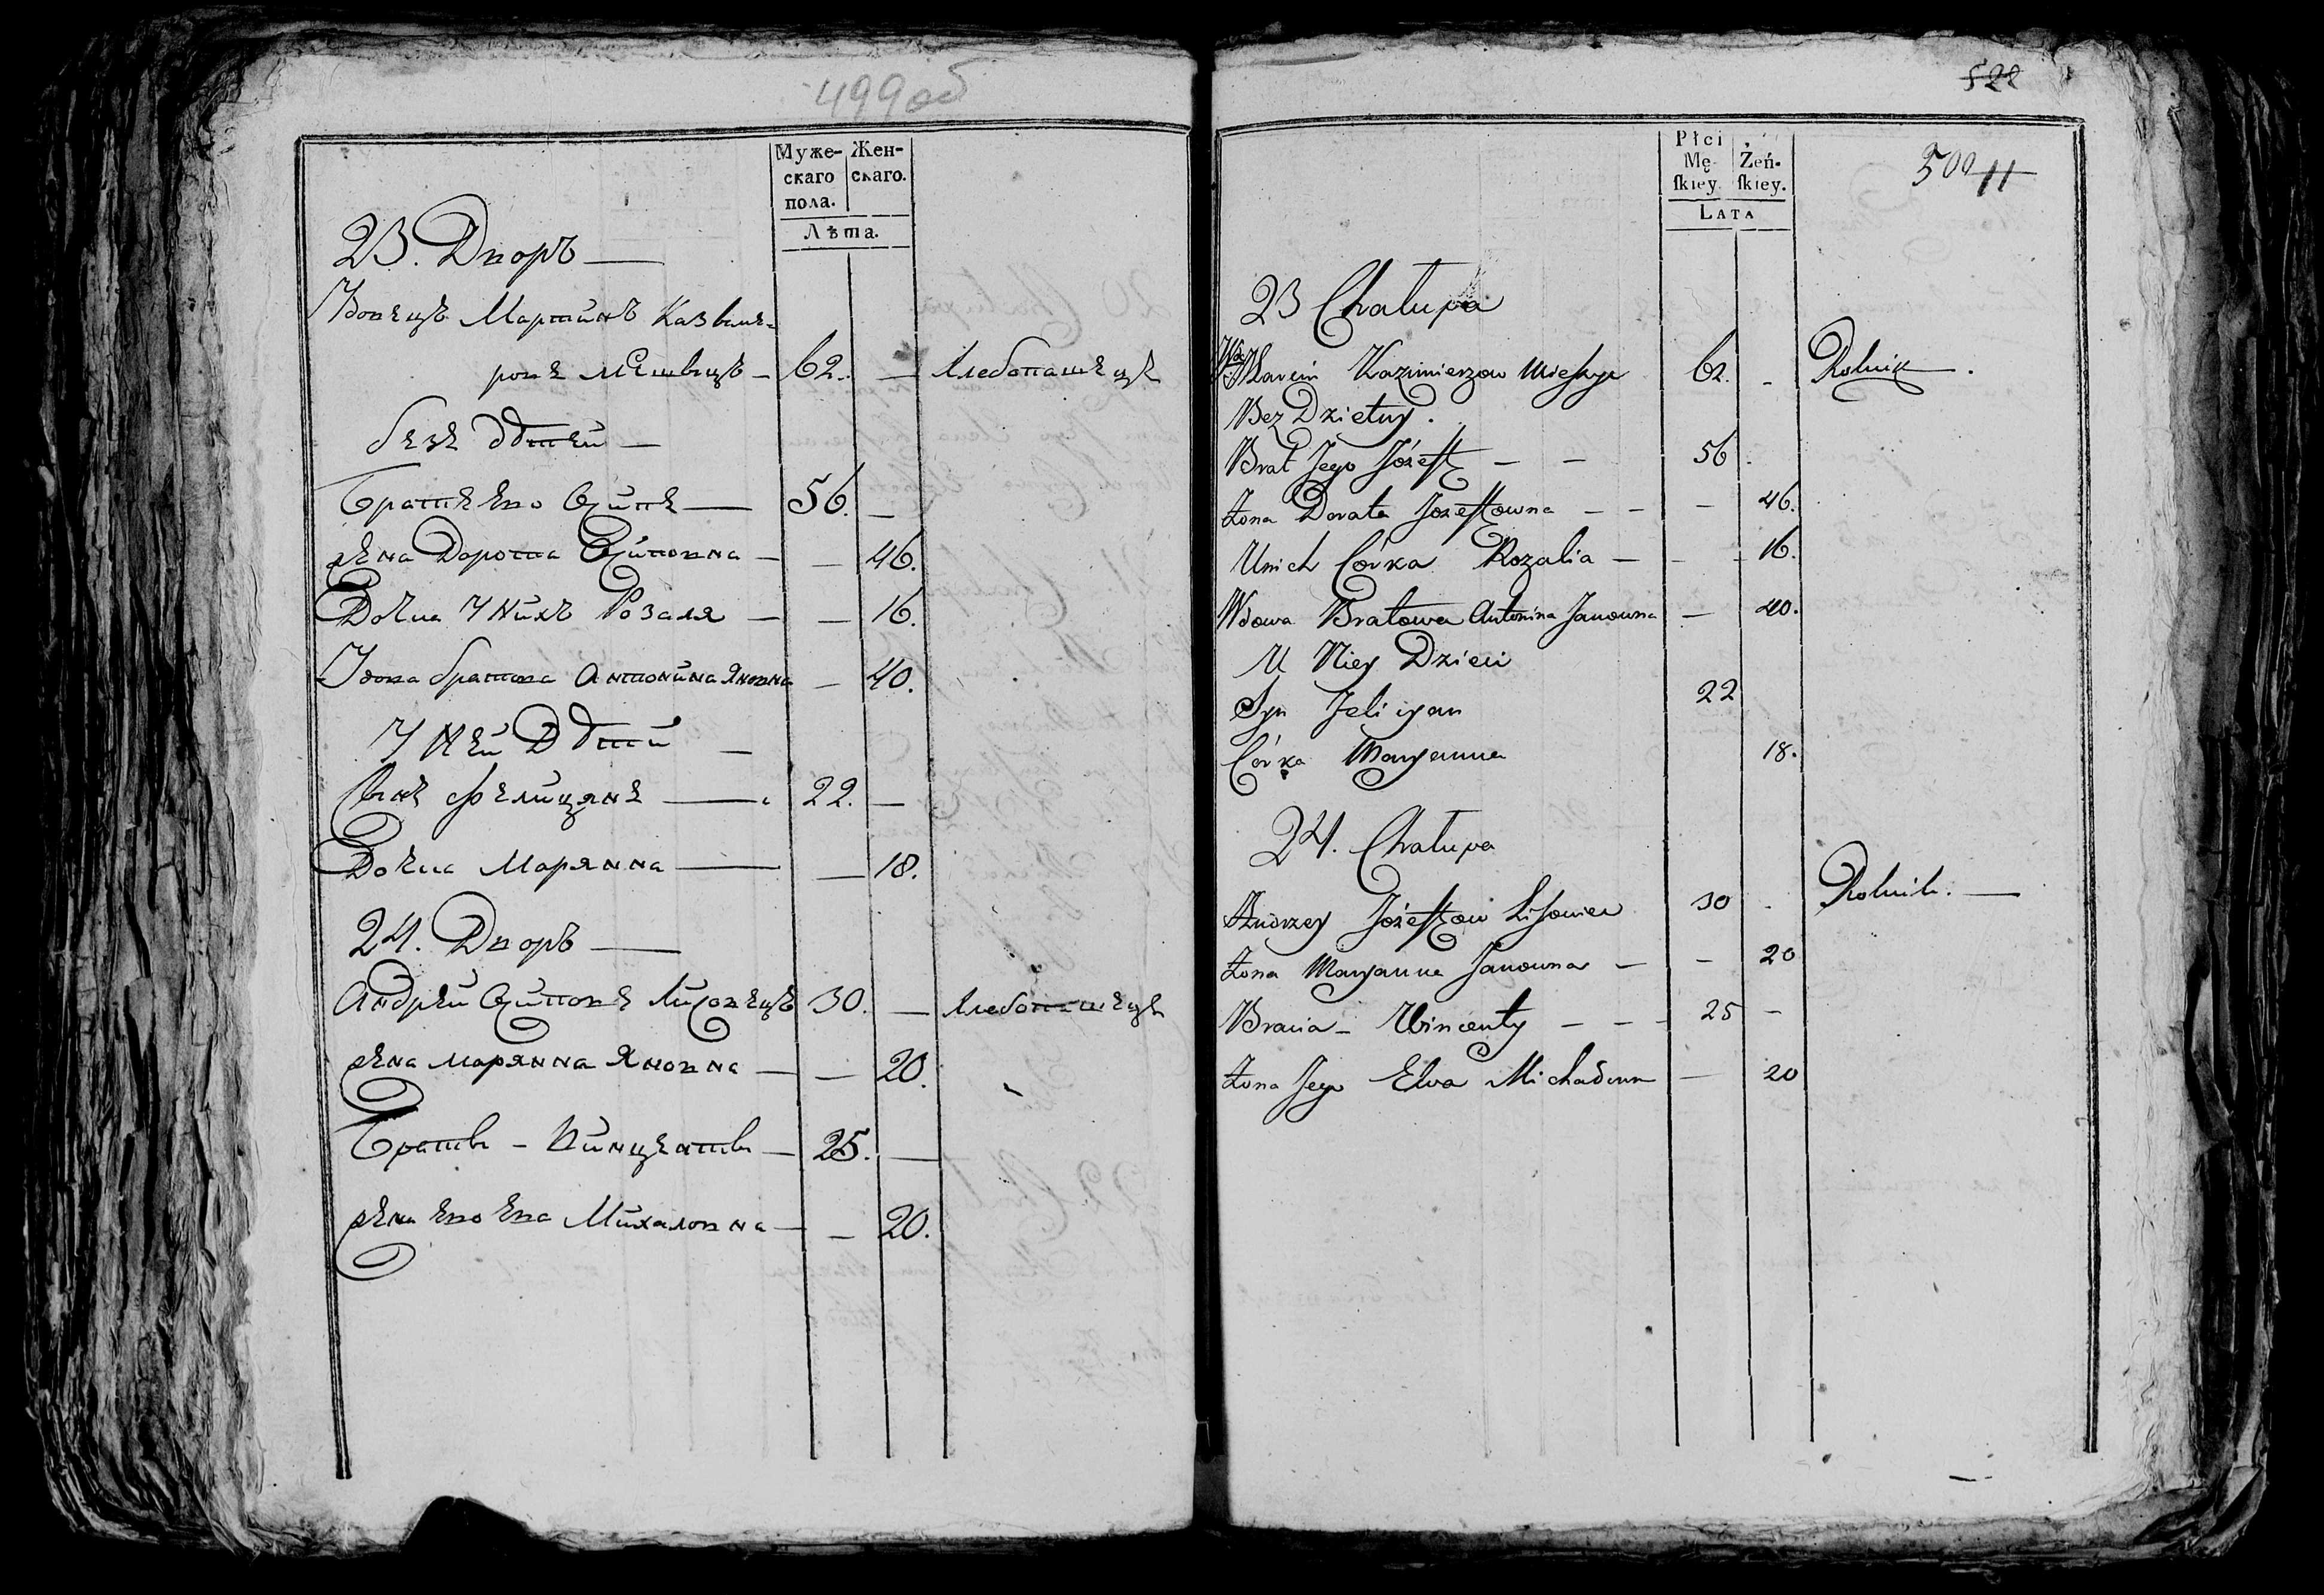 499об
Муже- Жен-
скаго скаго.
пола.
Лѣта.
23. Дворъ —
Вдовецъ Мартинъ Казыме-
ровъ Мешыцъ — 62. — Хлебопашецъ
безъ дѣтей —
Братъ его Осипъ — 56. —
жена Дорота Осиповна — — 46.
Дочка У Нихъ Розаля — — 16.
Вдова братова Антонина Яновна — 40.
У Ней Дѣтей —
Сынъ Фелицянъ — 22. —
Дочка Марянна — — 18.
24. Дворъ —
Андрей Осиповъ Лисовецъ 30. — Хлебопашецъ
жена Марянна Яновна — — 20.
Браты — Винценты — 25. —
жена его Ева Михаловна — — 20.
522
500 11
Płci
Mę- Żeń-
ſkiey. ſkiey.
LATA
23 Chałupa
Marcin Kazimierzow 62. - Rolnik.
Bez Dzietny.
Brat Jego Józeff — — 56.
Żona Dorata Jozeffowna — — — 46.
Unich Córka Rozalia — - - 16.
Wdowa Bratowa Antonina Janowna — 40.
U Niey Dzieci
Syn Felicyan 22
Córka Maryanna 18.
24. Chałupa
Andrzey Józeffow Lisowiec 30 - Rolnik. —
Żona Maryanna Janowna — — 20
Bracia — Wincenty — — - 25 -
Żona Jego Ewa Michałown — 20